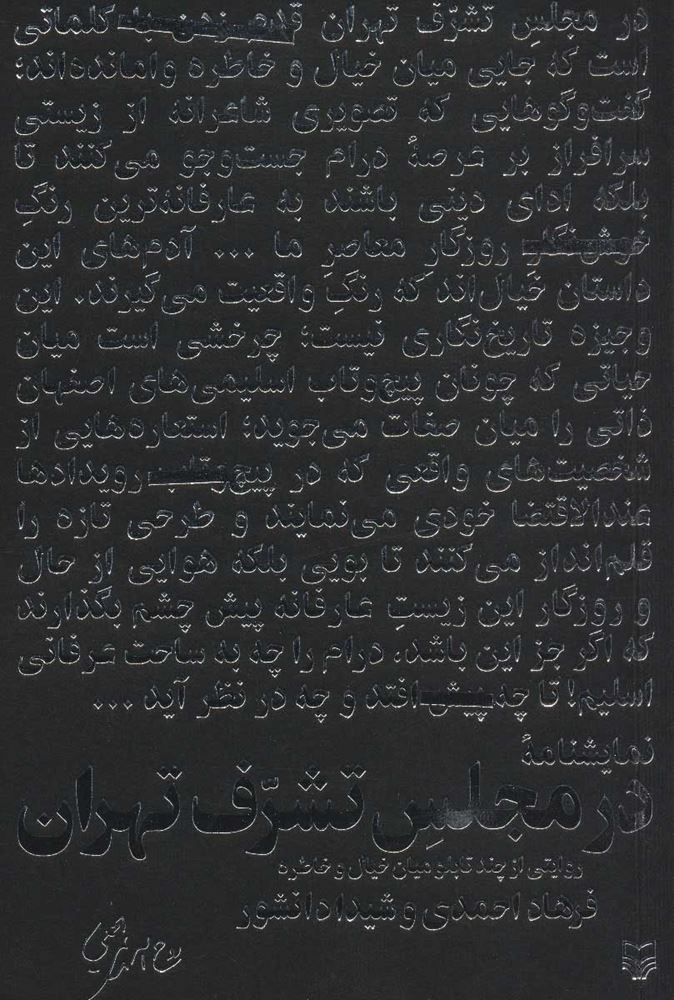 در مجلسِ تشرّف تهران قدم‌زدن با کلماتی
است که جایی میان خیال و خاطره وامانده‌اند؛
گفت‌وگوهایی که تصویری شاعرانه از زیستی
سرافراز بر عرصهٔ درام جست‌وجو می‌کنند تا
بلکه ادای دینی باشند به عارفانه‌ترین رنگِ
روزگارِ معاصرِ ما ... آدم‌های این
داستان خیال‌اند که رنگِ واقعیت می‌گیرند. این
وجیزه تاریخ‌نگاری نیست؛ چرخشی است میان
حیاتی که چونان پیچ‌وتاب اسلیمی‌های اصفهان
ذاتی را میان صفات می‌جوید؛ استعاره‌هایی از
شخصیت‌های واقعی که در پیچ‌وتاب رویدادها
عندالاقتضا خودی می‌نمایند و طرحی تازه را
قلم‌انداز می‌کنند تا بویی بلکه هوایی از حال
و روزگار این زیستِ عارفانه پیش چشم بگذارند
که اگر جز این باشد، درام را چه به ساحت عرفانی
اسلیم! تا چه پیش افتد و چه در نظر آید ...
نمایشنامهٔ
در مجلسِ تشرّف تهران
روایتی از چند تابلو میان خیال و خاطره
فرهاد احمدی و شیدا دانشور